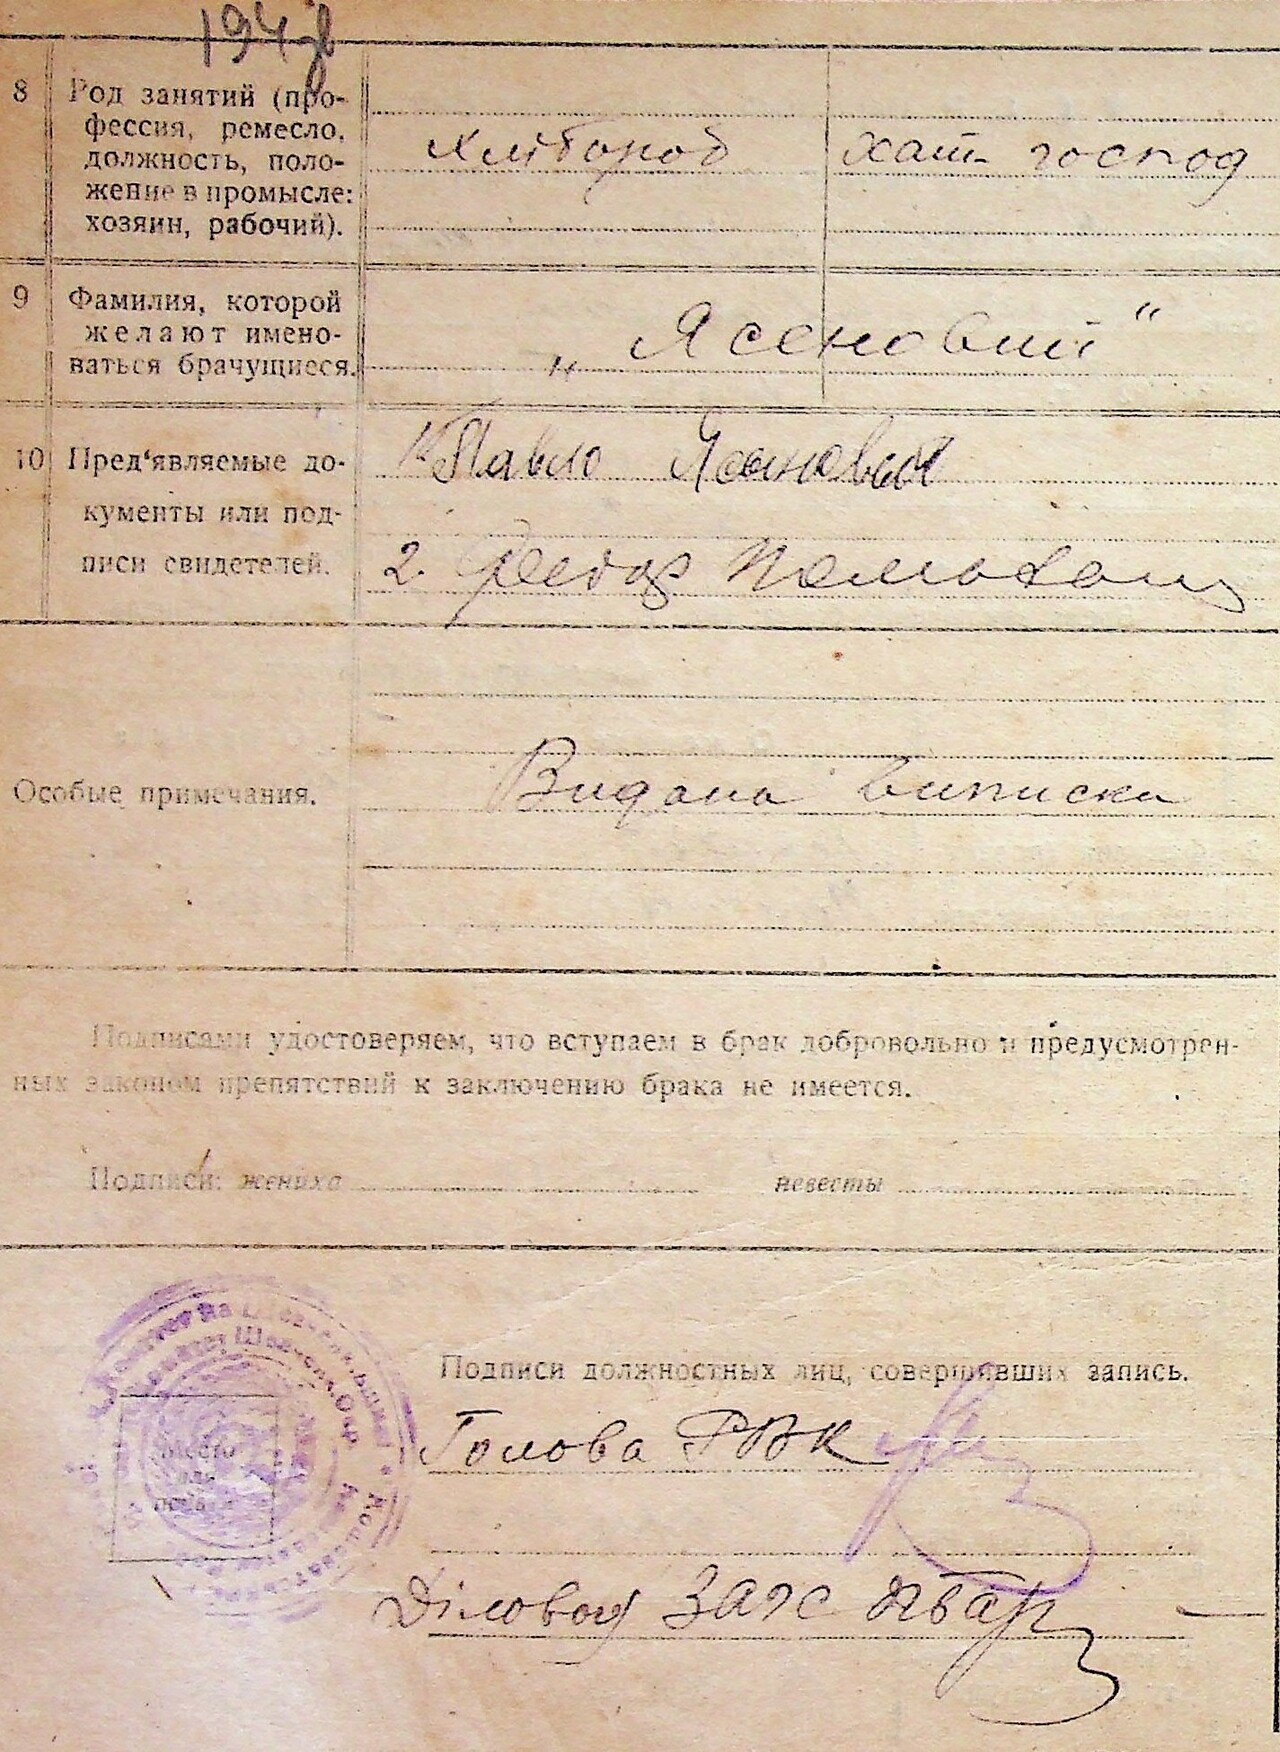 194
8 Род занятий (про-
фессия, ремесло,
должность, поло-
жение в промысле:
хозяин, рабочий).
хлібороб хатн господ
9 Фамилия, которой
желают имено-
ваться брачущиеся.
„Ясеновий“
10 Пред‘являемые до-
кументы или под-
писи свидетелей.
1. Павло Ясеновий
2. Федор
Особые примечания.
Видана виписка
Подписами удостоверяем, что вступаем в брак добровольно и предусмотрен-
ных законом препятствий к заключению брака не имеется.
Подписи: жениха невесты
Подписи должностных лиц, совершивших запись.
Голова РВК
Место
для
печати
Діловод ЗАГС